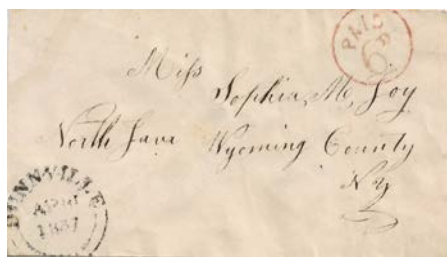 PAID
6D
Miss
Sophia M. Joy
North Java Wyoming County
N Y
DUNNVILLE
1857